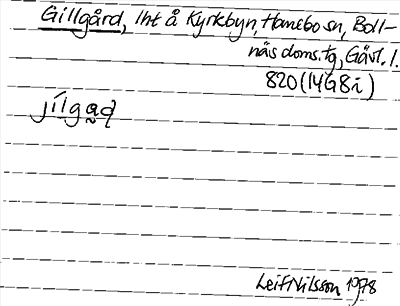 Gillgård, lht å Kyrkbyn, Hanebo sn, Boll-
näs doms. tg, Gävl. l.
820 (14G8i)
jílga̰ɖ
Leif Nilsson 1978